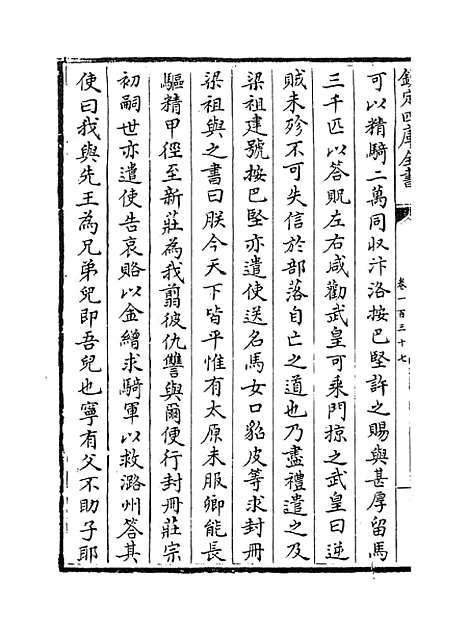 欽定四庫全書
卷一百三十七
可以精騎二萬同収汴洛按巴堅許之賜與甚厚留馬
三千匹以答貺左右咸勸武皇可乗門掠之武皇曰逆
賊未殄不可失信於部落自亡之道也乃盡禮遣之及
梁祖建號按巴堅亦遣使送名馬女口貂皮等求封冊
梁祖與之書曰朕今天下皆平惟有太原未服卿能長
驅精甲徑至新莊為我翦彼仇讐與爾便行封冊莊宗
初嗣世亦遣使告哀賂以金繒求騎軍以救潞州答其
使曰我與先王為兄弟兒即吾兒也寧有父不助子耶